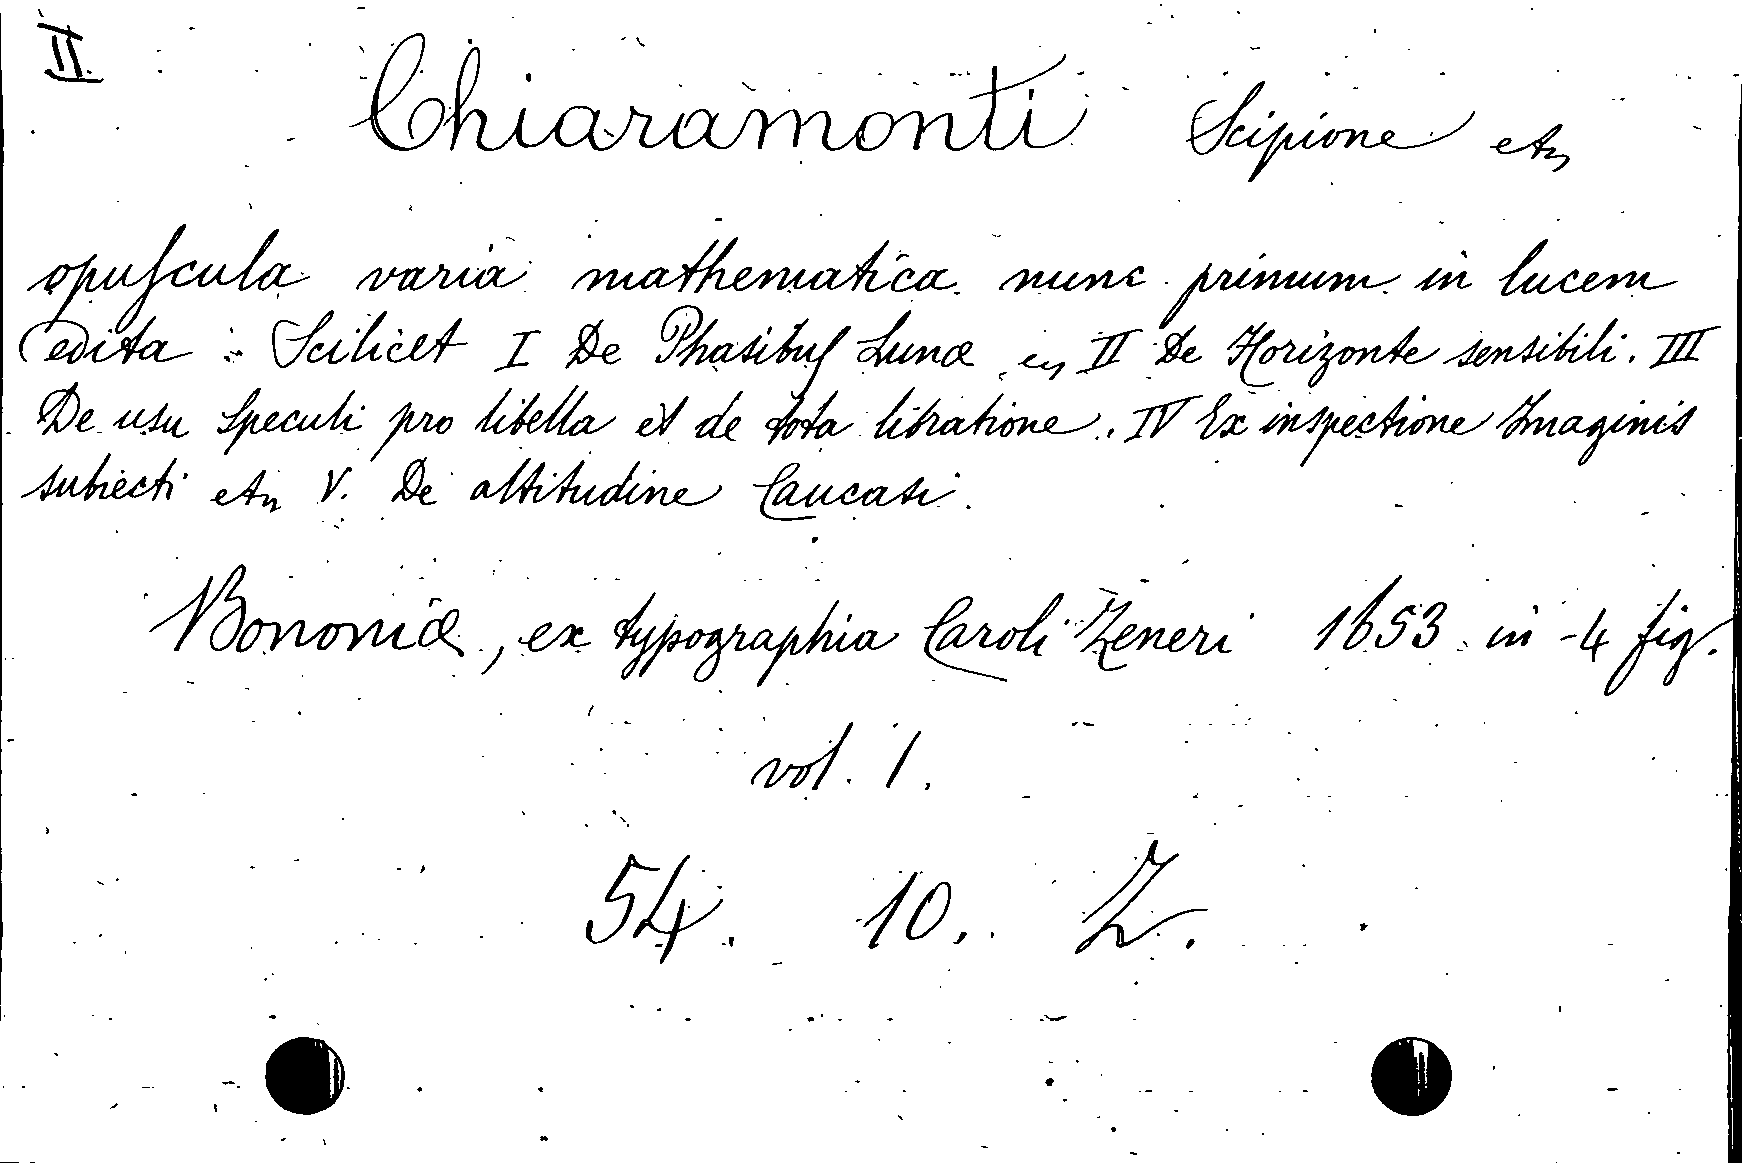 II.
Chiaramonti Scipione etc
opuscula varia mathematica nunc primum in lucem
edita : Scilicet I De Phasibus Lunæ ec II De Horizonte sensibili. III
De usu Speculi pro libella et de tota libratione. IV Ex inspectione Imaginis
subiecti etc V. De altitudine Caucasi.
Bononiæ, ex typographia Caroli Zeneri 1653 in-4 fig.
vol. 1.
54. 10. Z.